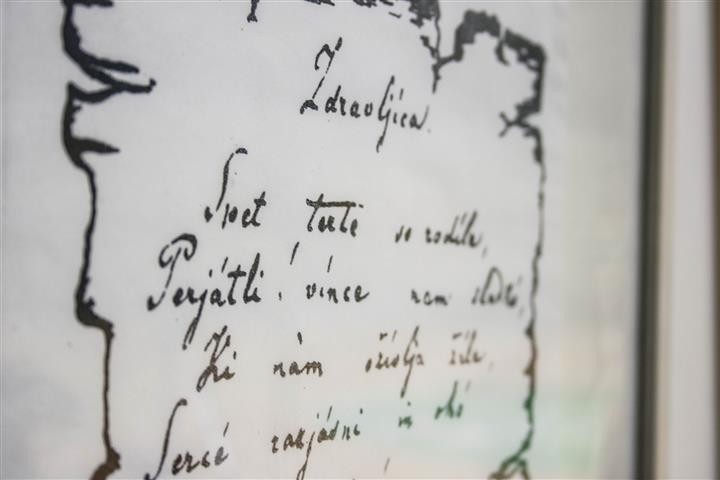 Zdravljica.
Spet terte so rodile,
Perjátli! vínce nam sladkó,
Ki nàm oživlja žile,
Sercé razjásni in okó